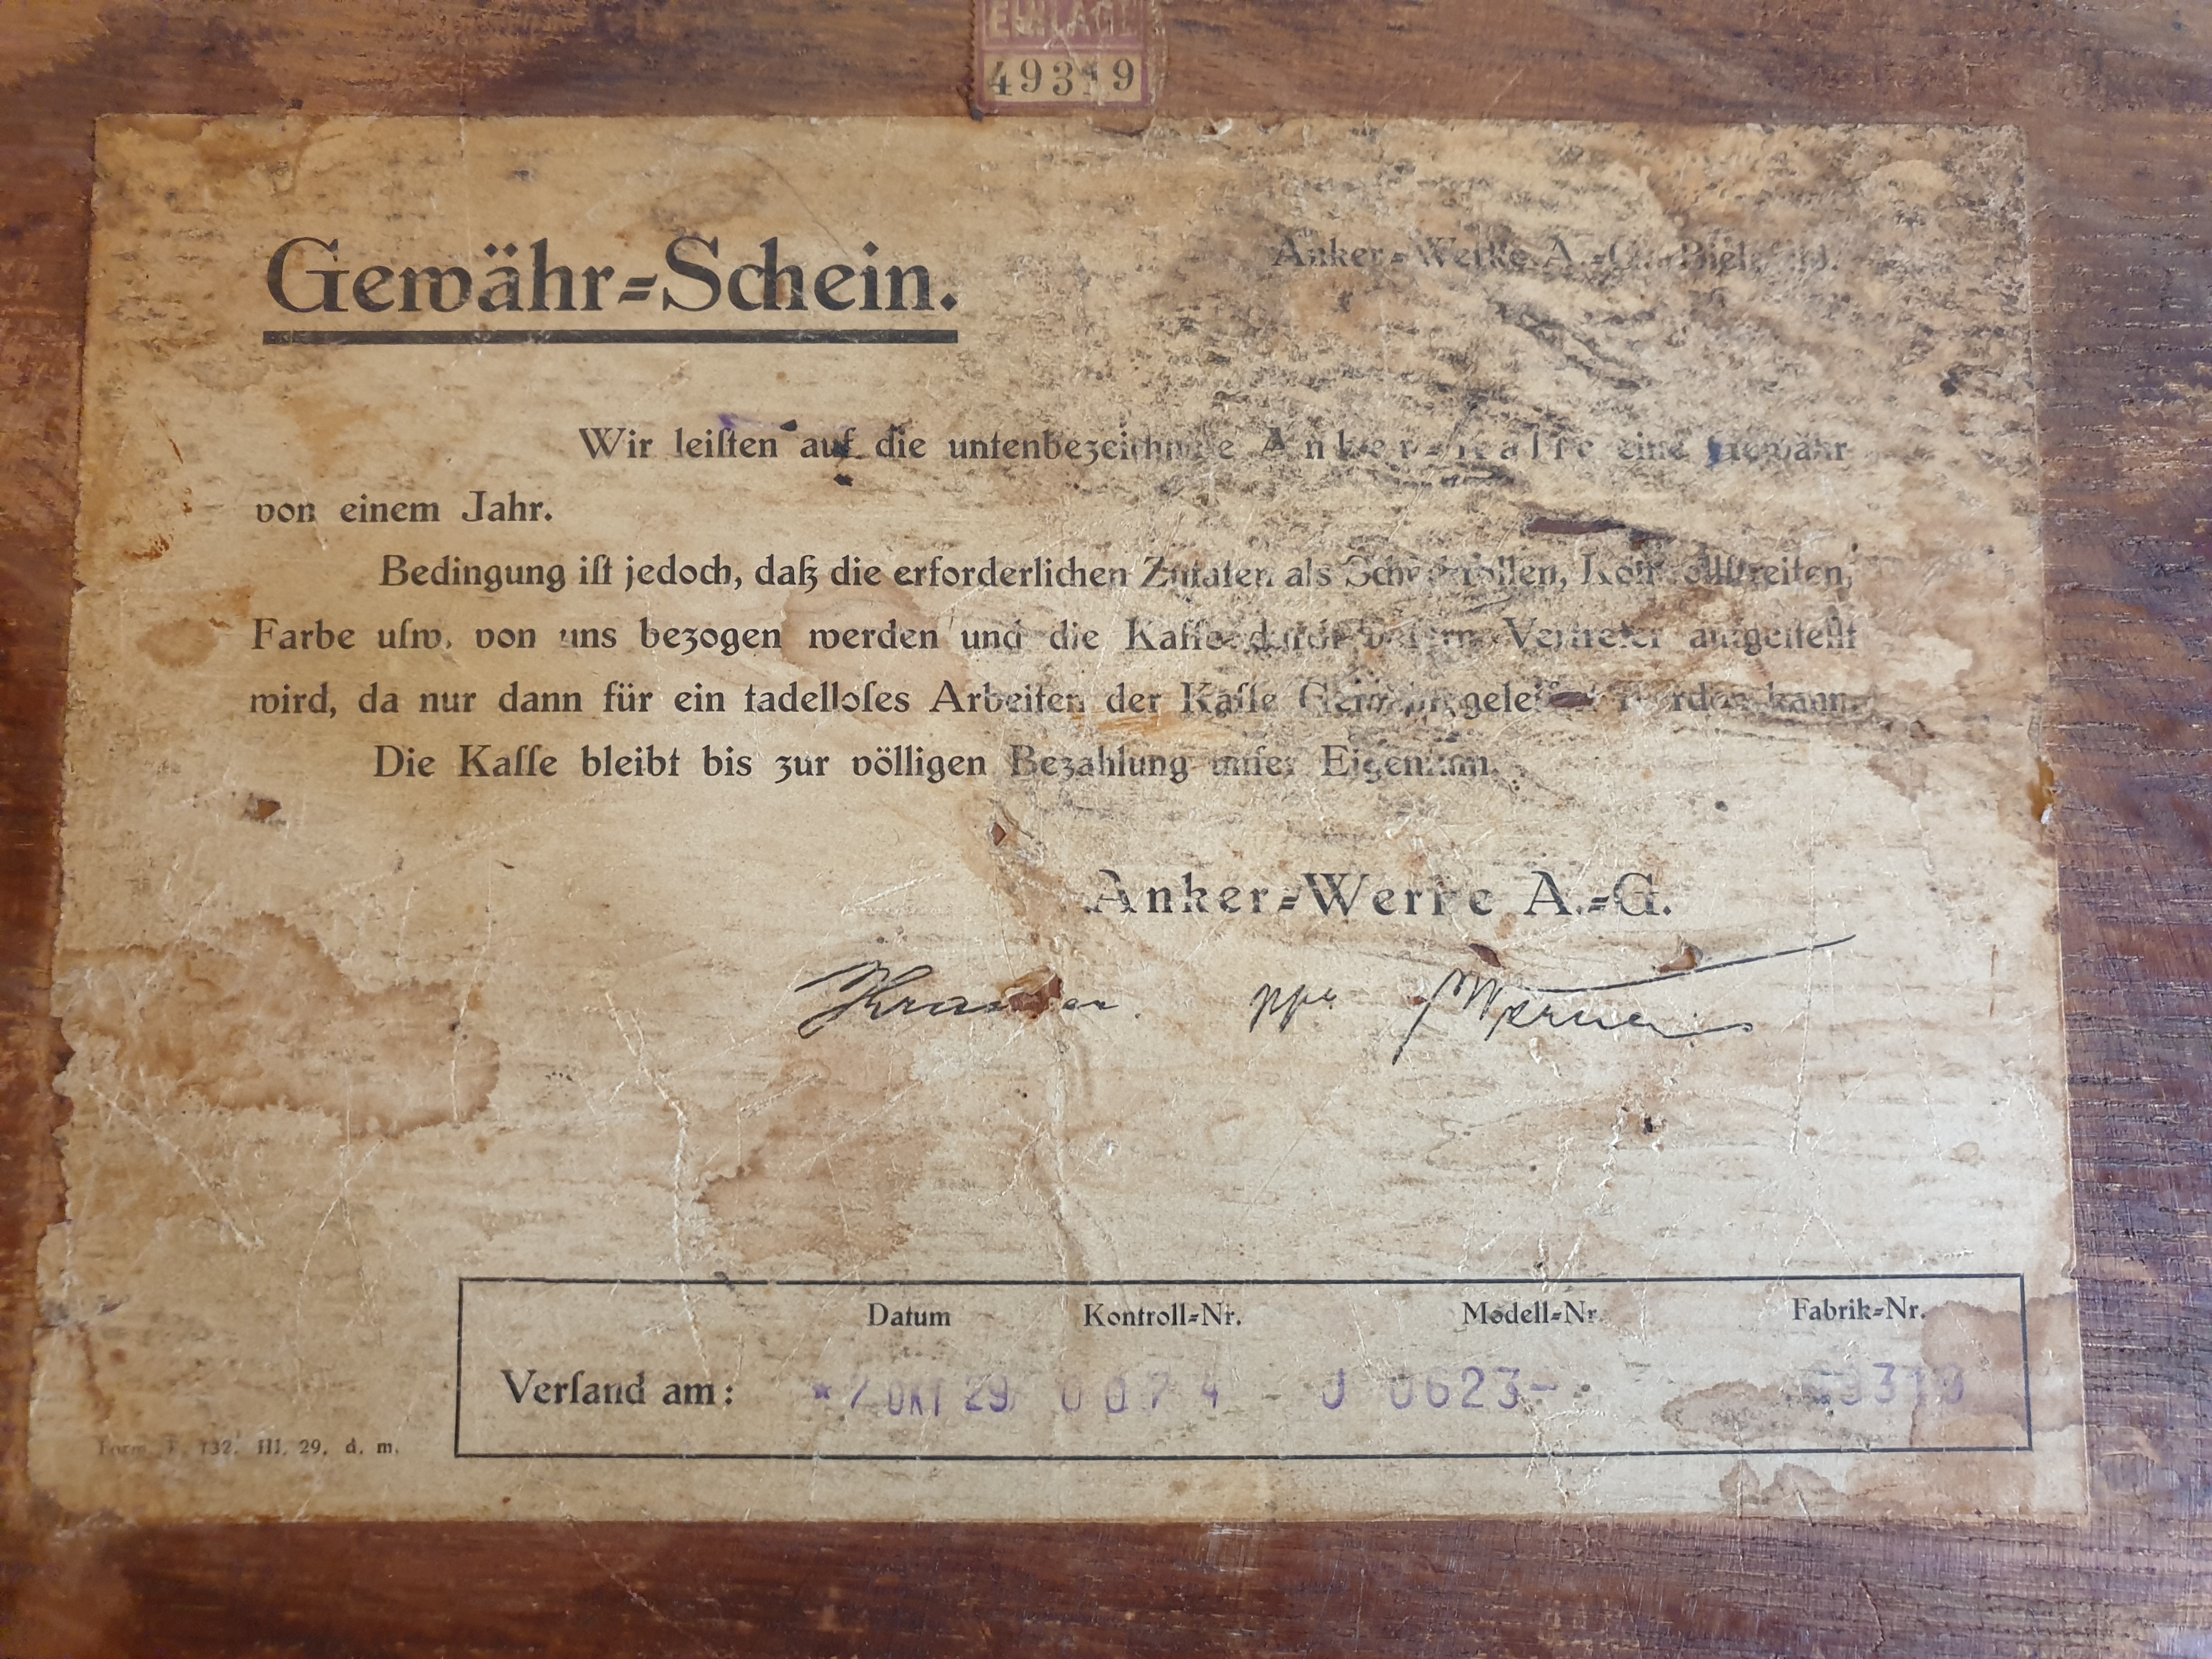 EINLAGE
49319
Gewähr=Schein.
Anker=Werke A.=G., Bielefeld.
Wir leiſten auf die untenbezeichnete Anker=Kaſſe eine Gewähr
von einem Jahr.
Bedingung iſt jedoch, daß die erforderlichen Zutaten als Scheckrollen, Kontrollſtreifen,
Farbe uſw. von uns bezogen werden und die Kaſſe durch Vertreter aufgeſtellt
wird, da nur dann für ein tadelloſes Arbeiten der Kaſſe Gewähr geleiſtet werden kann.
Die Kaſſe bleibt bis zur völligen Bezahlung unſer Eigentum.
Anker=Werke A.=G.
ppa
Datum Kontroll=Nr. Modell=Nr. Fabrik=Nr.
Verſand am: *7.OKT 29 0074 - J 0623-
132. III. 29. d. m.